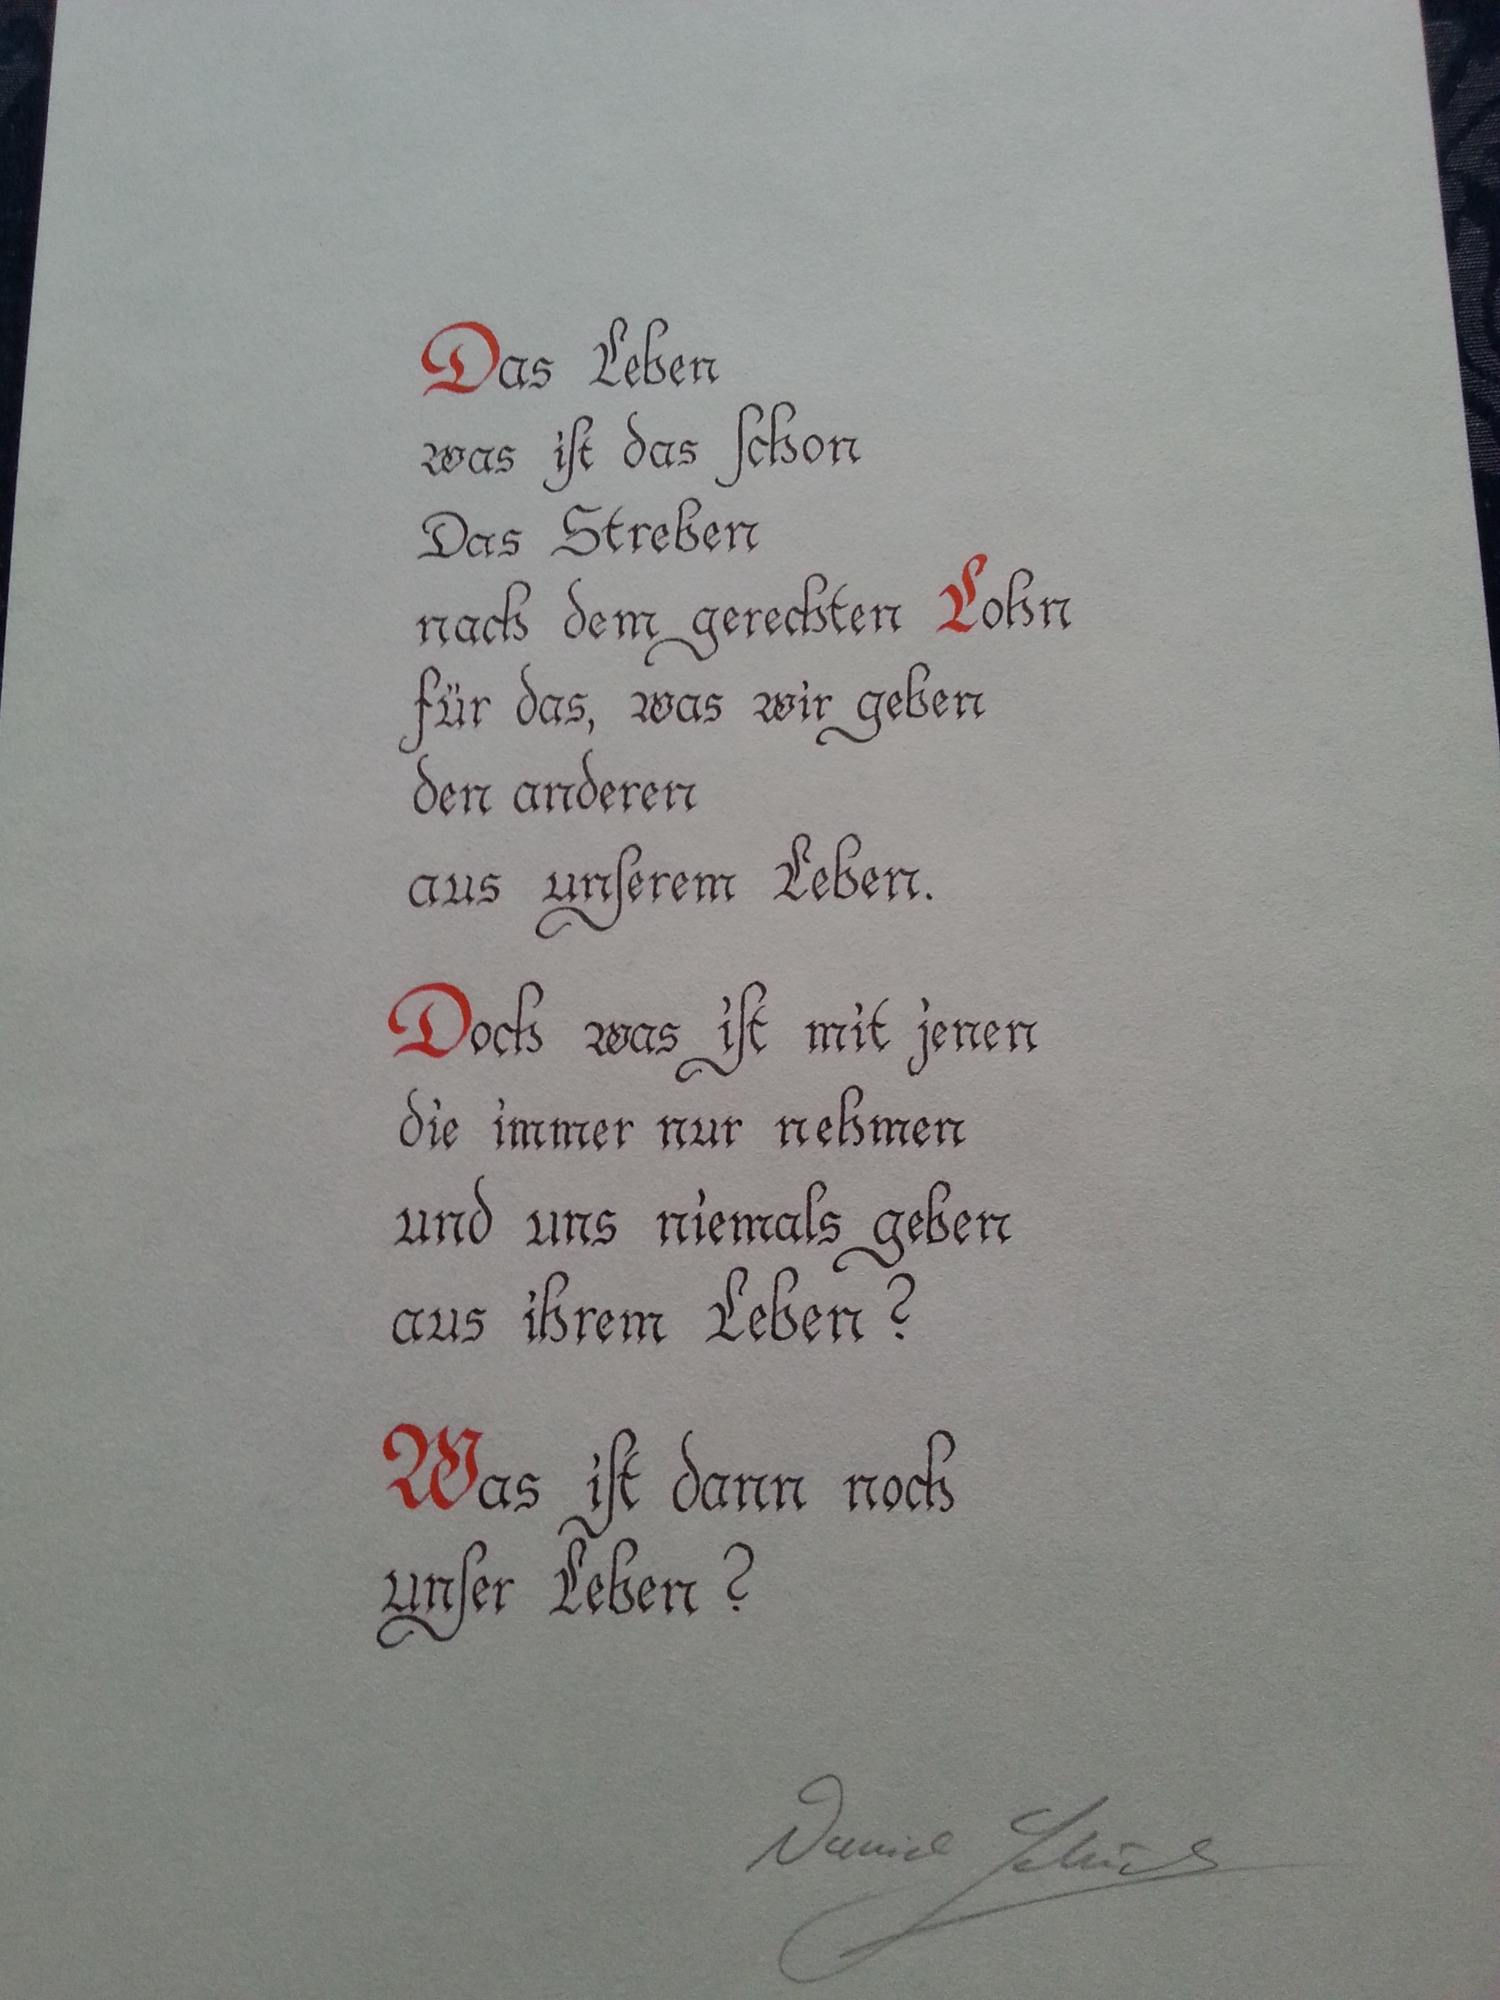 Das Leben
was iſt das ſchon
Das Streben
nach dem gerechten Lohn
für das, was wir geben
den anderen
aus unſerem Leben.
Doch was iſt mit jenen
die immer nur nehmen
und uns niemals geben
aus ihrem Leben?
Was iſt dann noch
unſer Leben?
Daniel